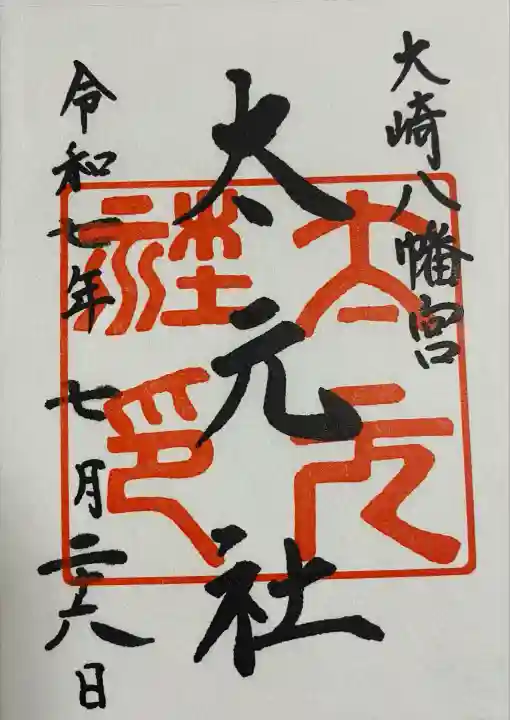 大崎八幡宮
太元社
令和七年 七月二十八日
太元
社印